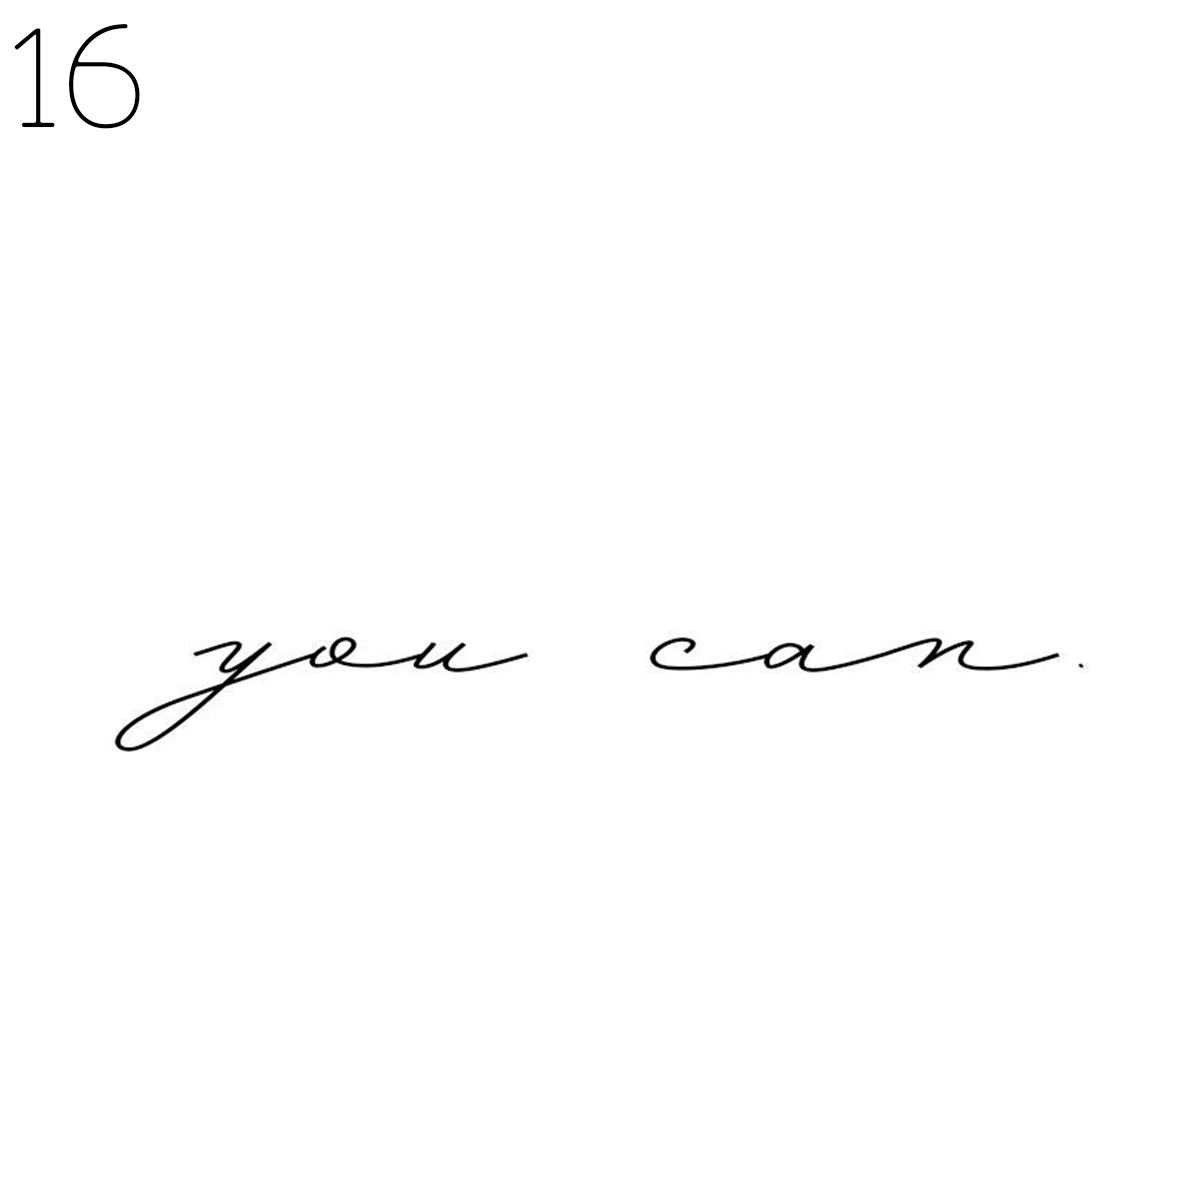 16
you can.